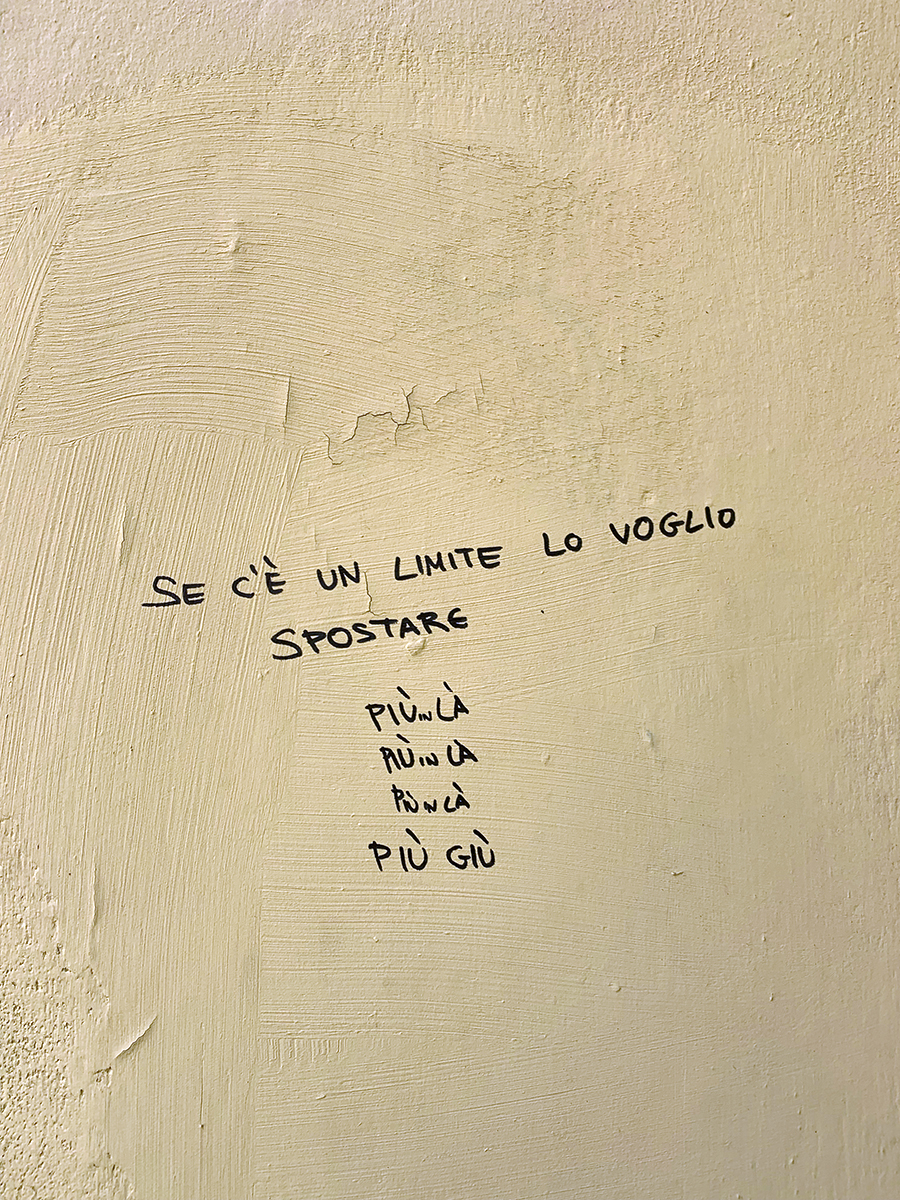 SE C'È UN LIMITE LO VOGLIO
SPOSTARE
PIÙ IN LÀ
PIÙ IN LÀ
PIÙ IN LÀ
PIÙ GIÙ